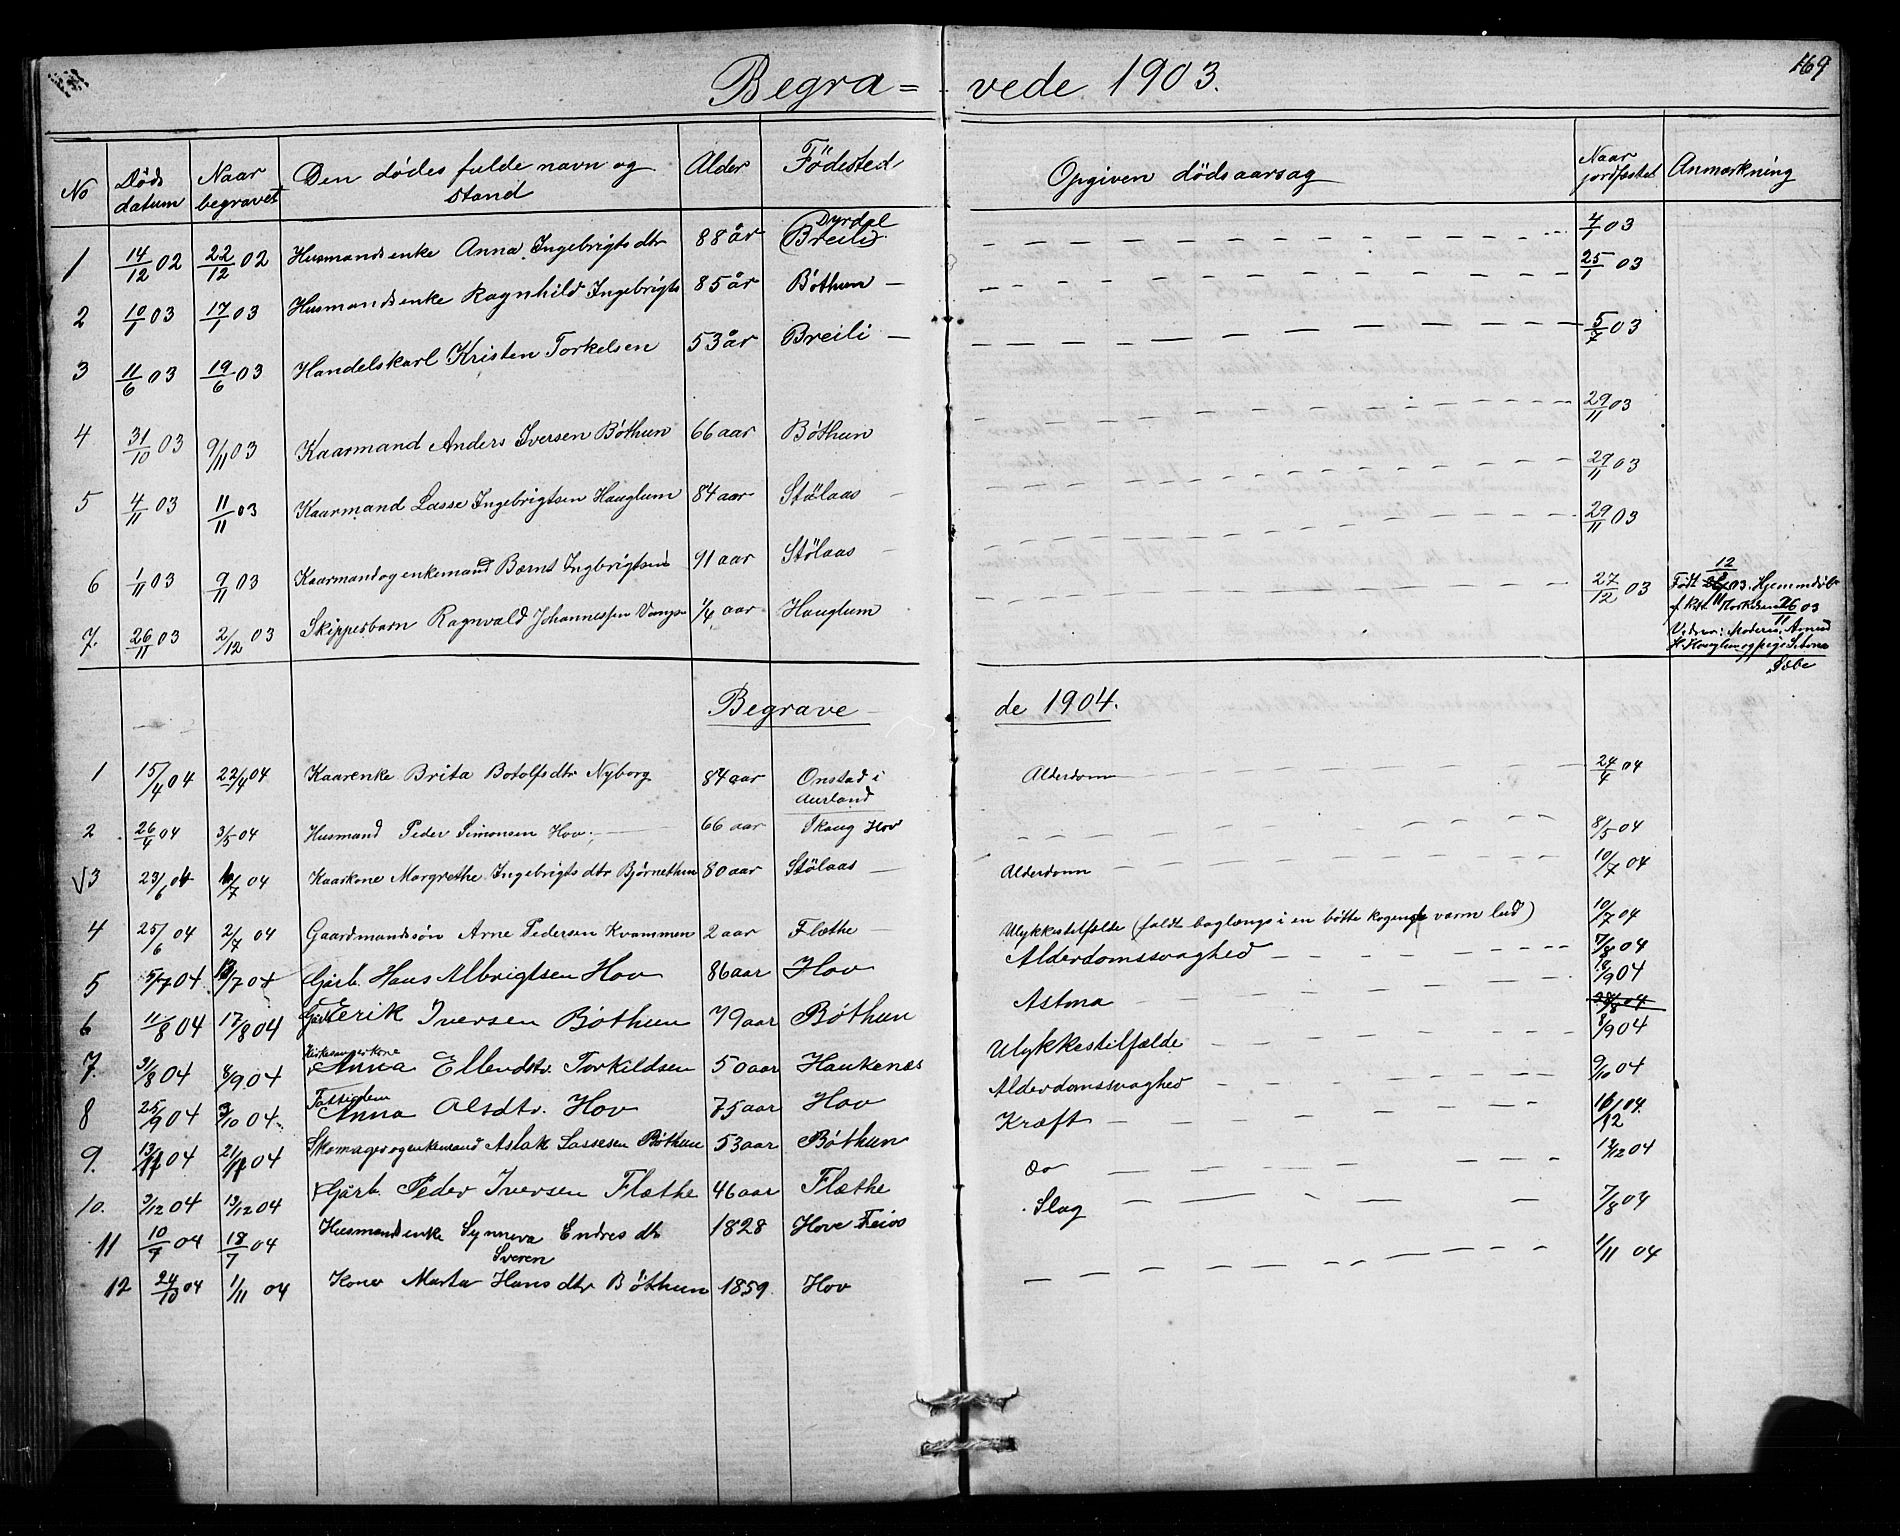 169
Begra= vede 1903.
No | Døds datum | Naar begravet | Den dødes fulde navn og stand | Alder | Födested | Opgiven dödsaarsag | Naar jordfæstet | Anmærkning
1 | 14/12 02 | 22/12 02 | Husmandsenke Anna Ingebrigtsdtr | 88 år | Dyrdal Breili | | 4/1 03
2 | 10/1 03 | 17/1 03 | Husmandsenke Ragnhild Ingebrigts | 85 år | Bøthun | | 25/1 03
3 | 11/6 03 | 19/6 03 | Handelskarl Kristen Torkelsen | 53 år | Breili | | 5/7 03
4 | 31/10 03 | 9/11 03 | Kaarmand Anders Iversen Bøthun | 66 aar | Bøthun | | 29/11 03
5 | 4/11 03 | 11/11 03 | Kaarmand Lasse Ingebrigtsen Hauglum | 84 aar | Stölaas | | 29/11 03
6 | 1/11 03 | 9/11 03 | Kaarmand og enkemand Bærnt Ingbrigtsen | 91 aar | Stölaas | | 29/11 03
7. | 26/11 03 | 2/12 03 | Skippesbarn Ragnvald Johannessen Vangs | 1/4 aar | Hauglum | | 27/12 03 | Født 12/8 03. Hjemmdøbt af 26/11 03 Vidner: Moderen, H. Hauglum og pige
Begrave de 1904.
1 | 15/4 04 | 22/4 04 | Kaarenke Brita Botolfsdtr Nyborg | 84 aar | Onstad i Aurland | Alderdom | 24/4 04
2 | 26/4 04 | 3/5 04 | Husmand Peder Simonsen Hov. | 66 aar | Skaug Hov | | 8/5 04
√3 | 23/6 04 | /7 04 | Kaarkone Margrethe Ingebrigtsdtr Bjørnethun | 80 aar | Stölaas | Alderdom | 10/7 04
4 | 25/6 04 | 2/7 04 | Gaardmandssön Arne Pedersen Kvammen | 2 aar | Flæthe | Ulykkestilfælde (faldt baglængs i en bøtte kogende varm lud) | 10/7 04
5 | 5/7 04 | 13/7 04 | Gårb. Hans Albrigtsen Hov | 86 aar | Hov | Alderdomssvaghed | 7/8 04
6 | 11/8 04 | 17/8 04 | Gårb. Erik Iversen Bøthun | 79 aar | Bøthun | Astma | 18/9 04
28/8 04
7. | 31/8 04 | 8/9 04 | Kirkesangerkone Anna Ellendsdtr. Torkildsen | 50 aar | Haukenæs | Ulykkestilfælde | 8/9 04
8 | 25/9 04 | 3/10 04 | Fattiglem Anna Olsdtr. Hov | 75 aar | Hov | Alderdomssvaghed | 9/10 04
9. | 04 | 04 | Skomager og enkemand Aslak Lassesen Bøthun | 53 aar | Bøthun | Kræft | 04
10. | 3/12 04 | 13/12 04 | Gårb. Peder Iversen Flæthe | 46 aar | Flæthe | do | 13/12 04
11 | 10/7 04 | 18/7 04 | Husmandsenke Synneva Endresdtr Sveren | 1828 | Hove Feios | Slag | 7/8 04
12 | 24/10 04 | 1/11 04 | Kone Marta Hansdtr Bøthun | 1859. | Hov | | 1/11 04